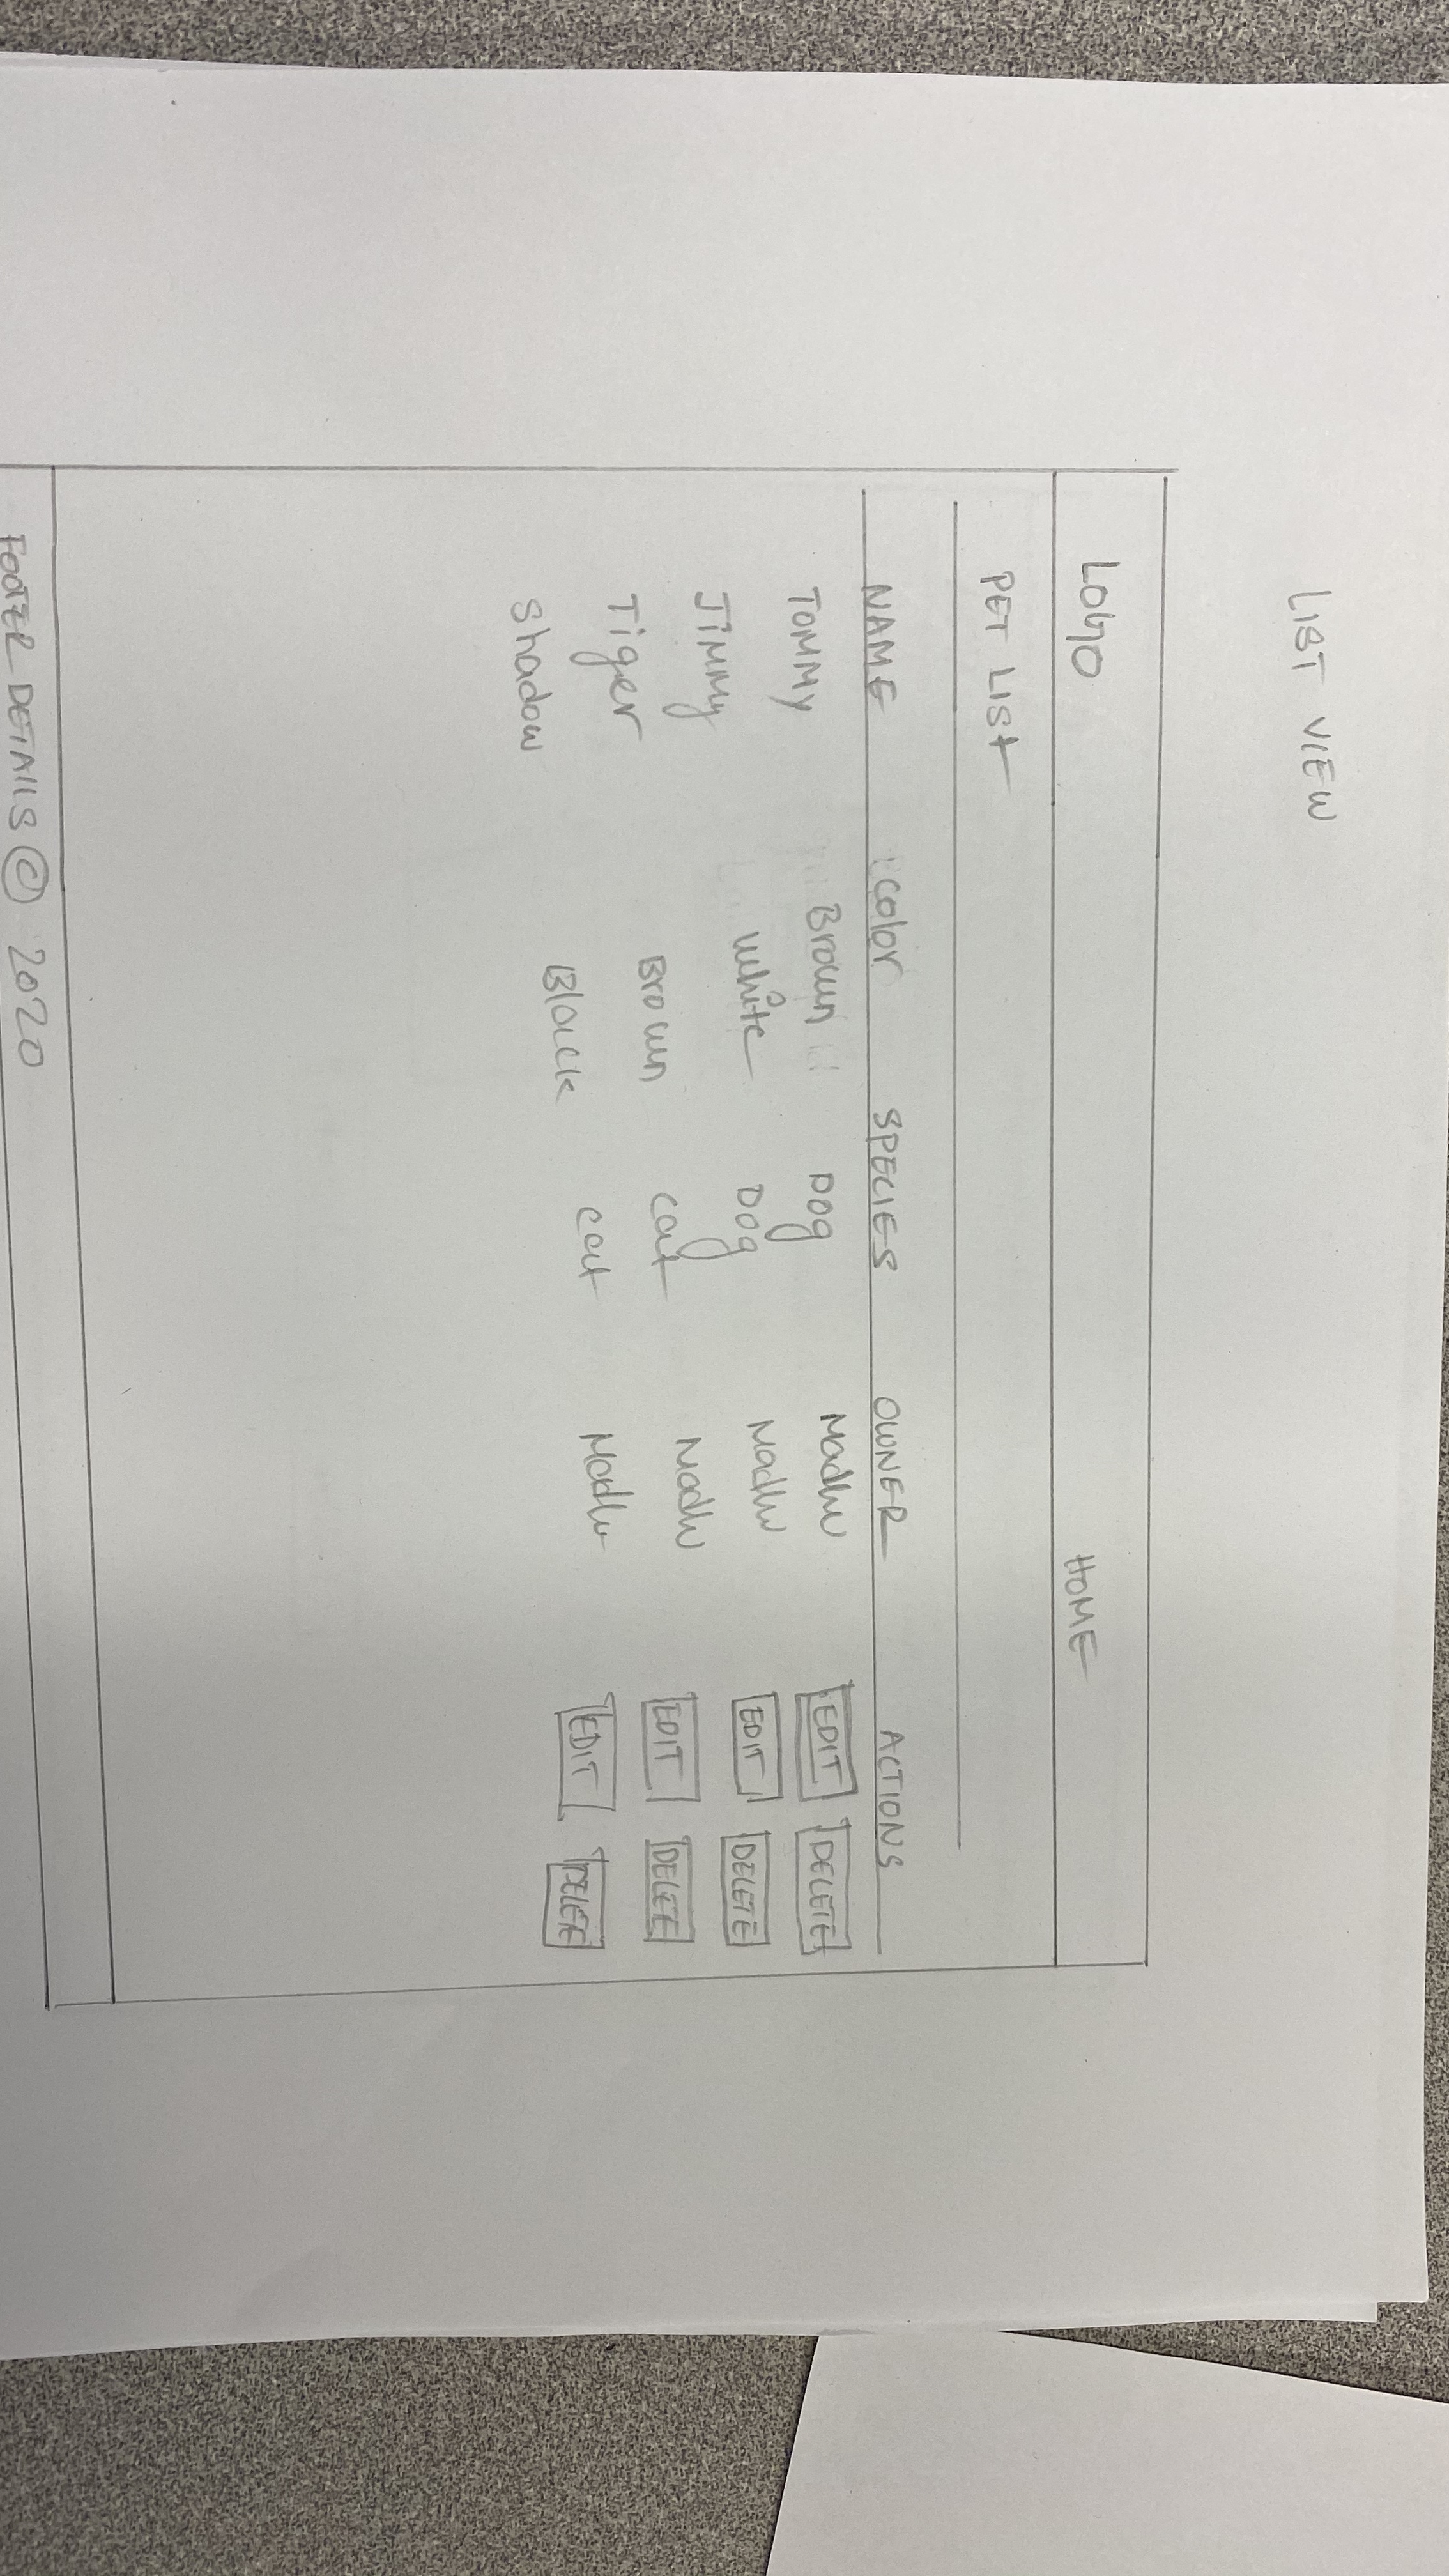 LIST VIEW
LOGO HOME
PET LIST
NAME Color SPECIES OWNER ACTIONS
TOMMY Brown Dog Madhu EDIT DELETE
JIMMy white Dog Madhu EDIT DELETE
Tiger Brown cat Madhu EDIT DELETE
Shadow Black cat Madhu EDIT DELETE
FOOTER DETAILS © 2020